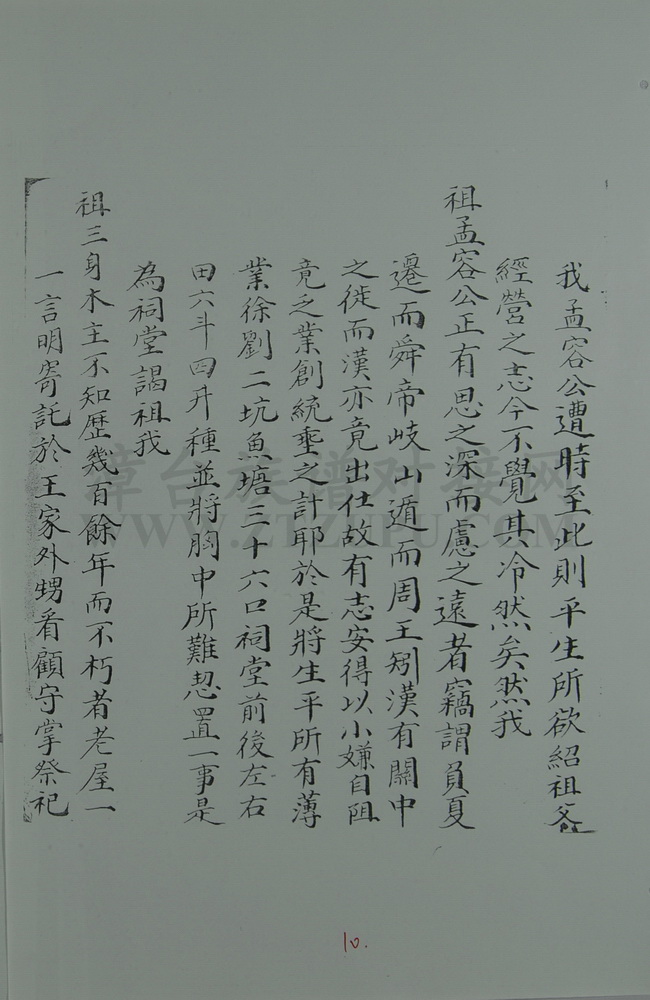 我孟容公遭時至此則平生所欲紹祖父
經營之志今不覺其冷然矣然我
祖孟容公正有思之深而慮之遠者竊謂負夏
遷而舜帝岐山遁而周王矧漢有關中
之徙而漢亦竟出仕故有志安得以小嫌自阻
竟乏業創統垂之計耶於是將生平所有薄
業徐劉二坑魚塘三十六口祠堂前後左右
田六斗四升種並將胸中所難恝置一事是
為祠堂謁祖我
祖三身木主不知歷幾百餘年而不朽者老屋一
一言明寄託於王家外甥看顧守掌祭祀
章台族譜对接网
WWW.ZTZUPU.COM
10.